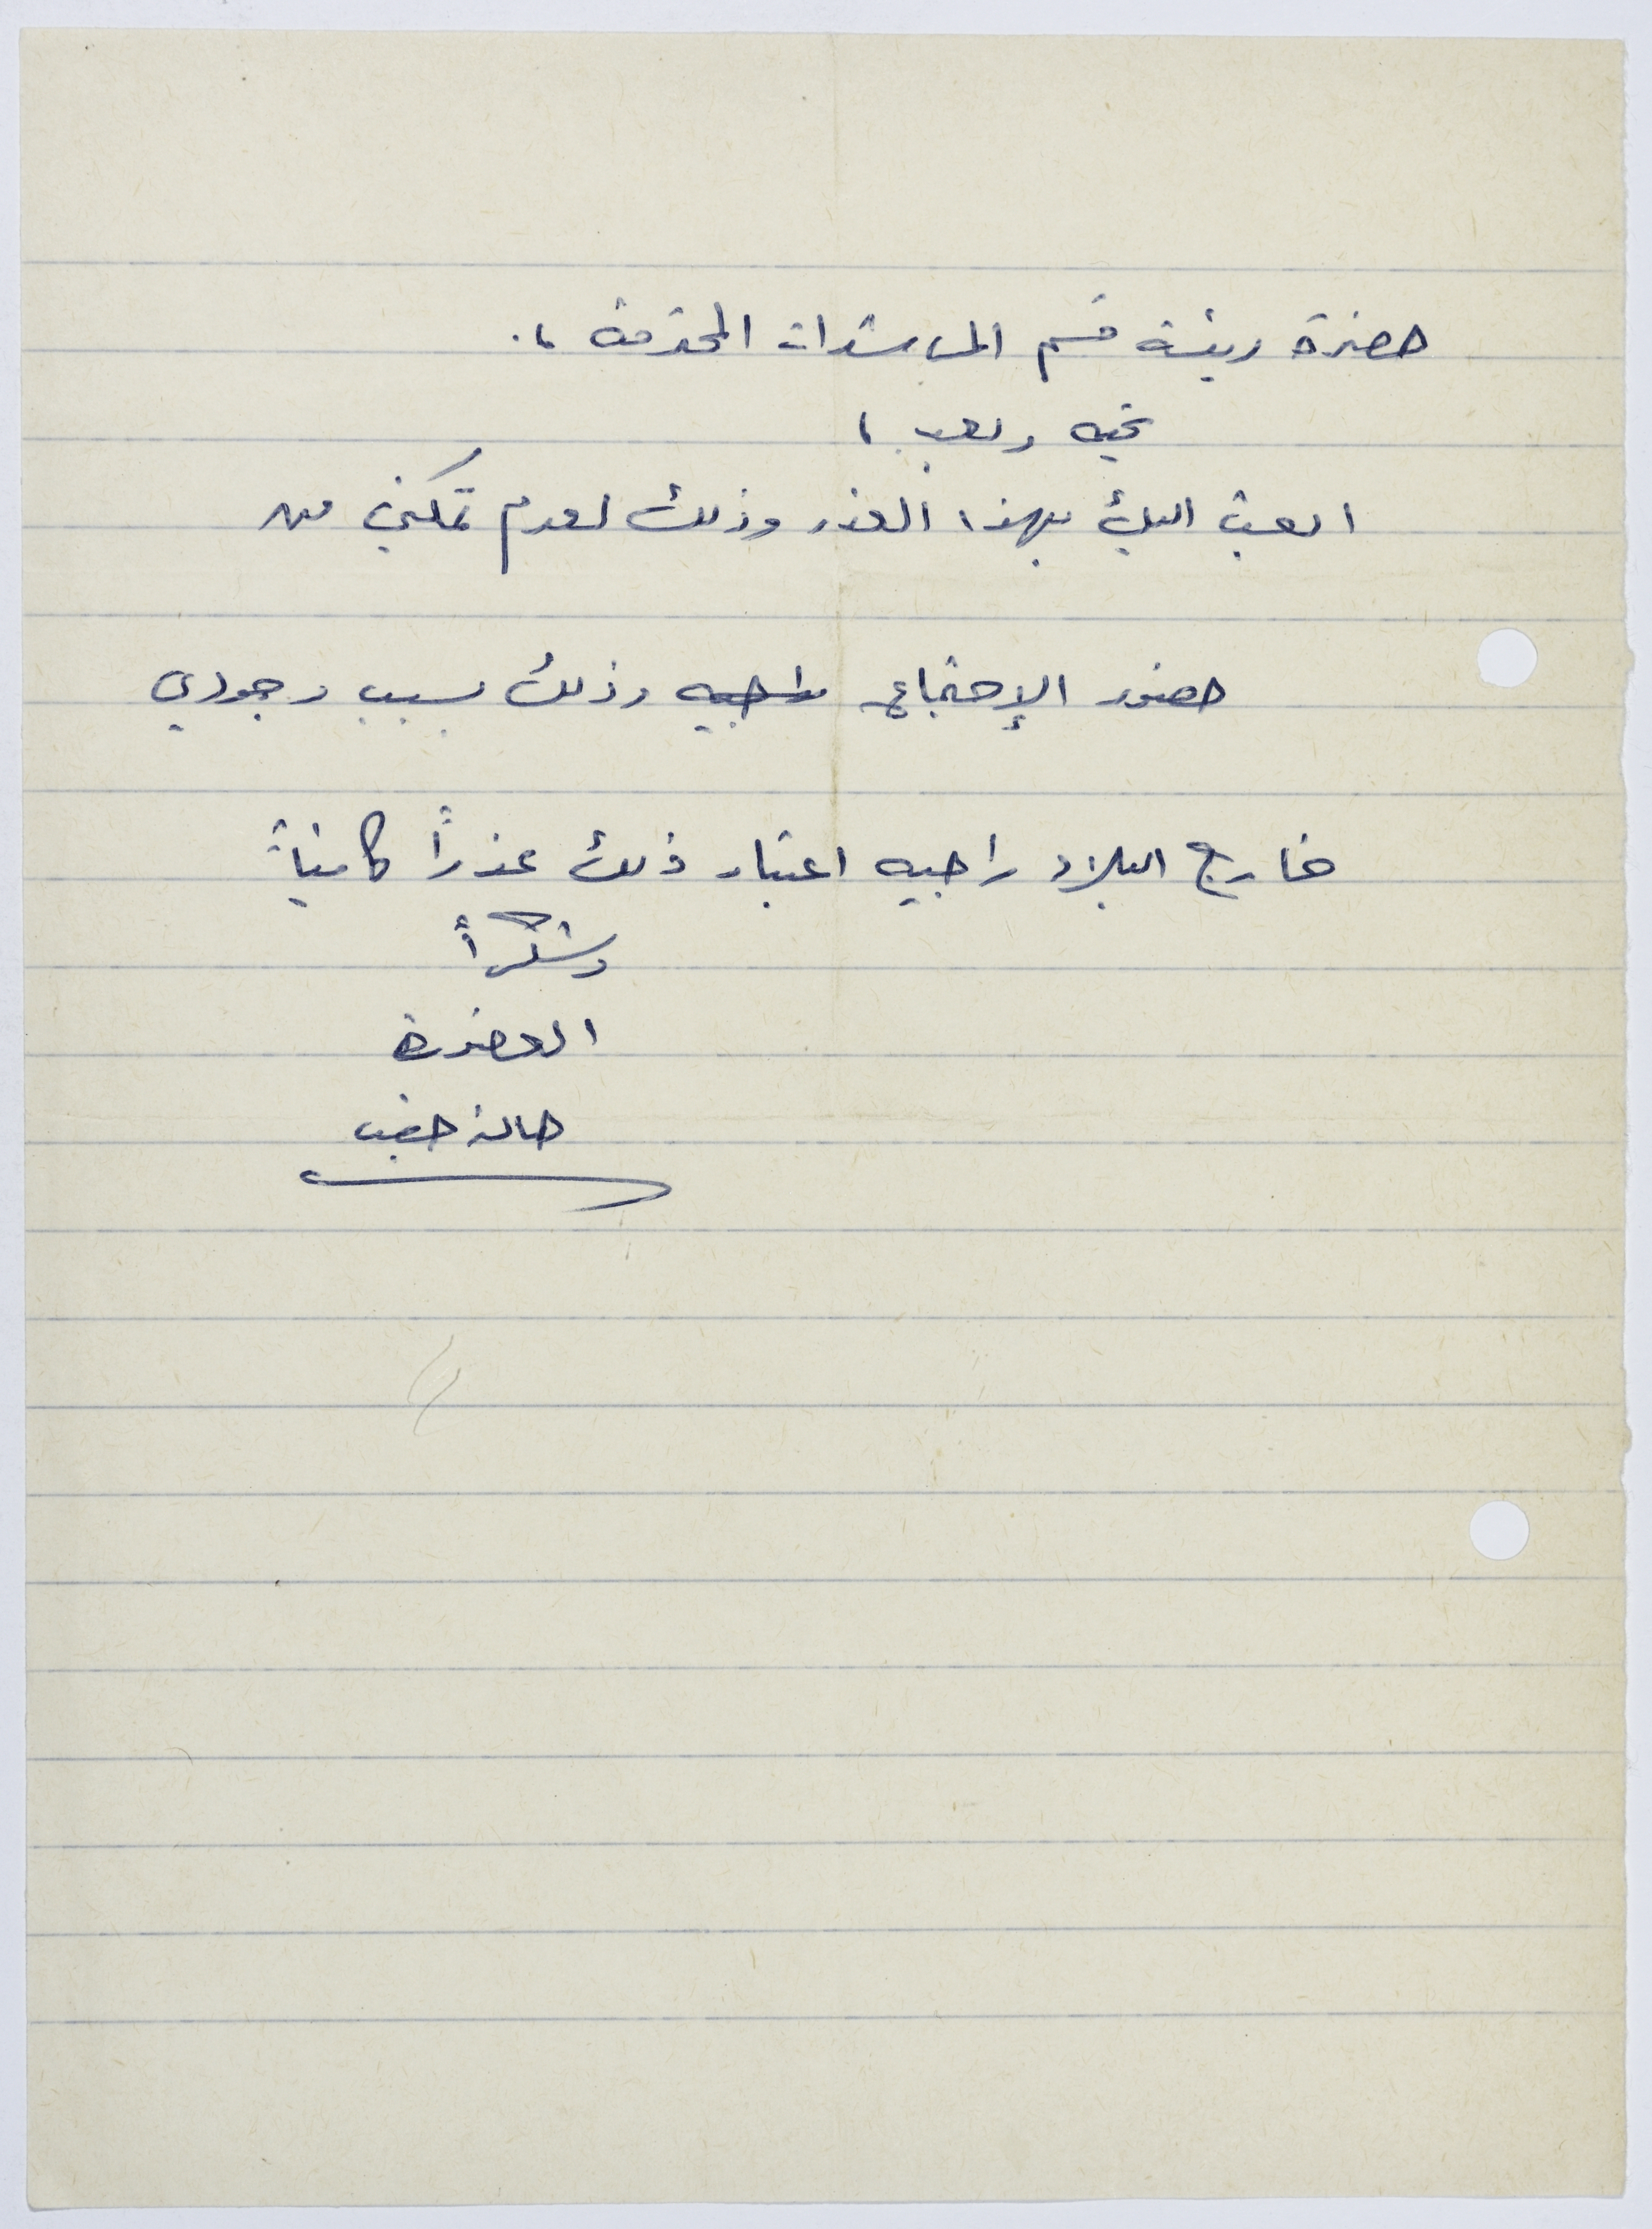 حضرة رئيسة قسم المرشدات المحترمة ،.
تحية وبعد ،
ابعث اليك بهذا العذر وذلك لعدم تمكني من
حضور الإجتماع راجيه وذلك بسبب وجودي
خارج البلاد راجيه اعتبار ذلك عذراً كافياً
وشكراً
العضوة
هالة